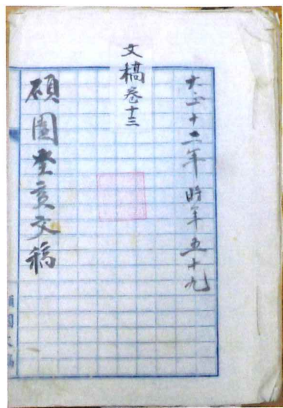 大正十二年 時年五十九
文槁卷十三
碩園癸亥文稿